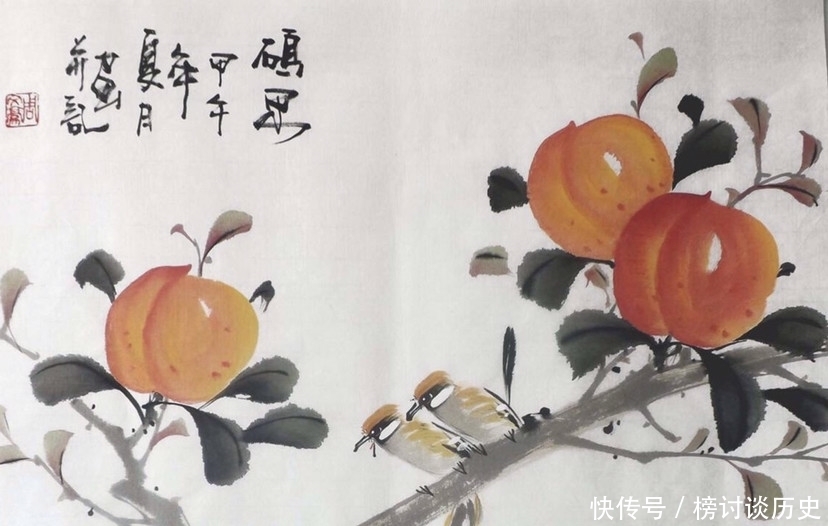 碩果
甲午
年
夏月
画
并記
快传号 / 榜讨谈历史